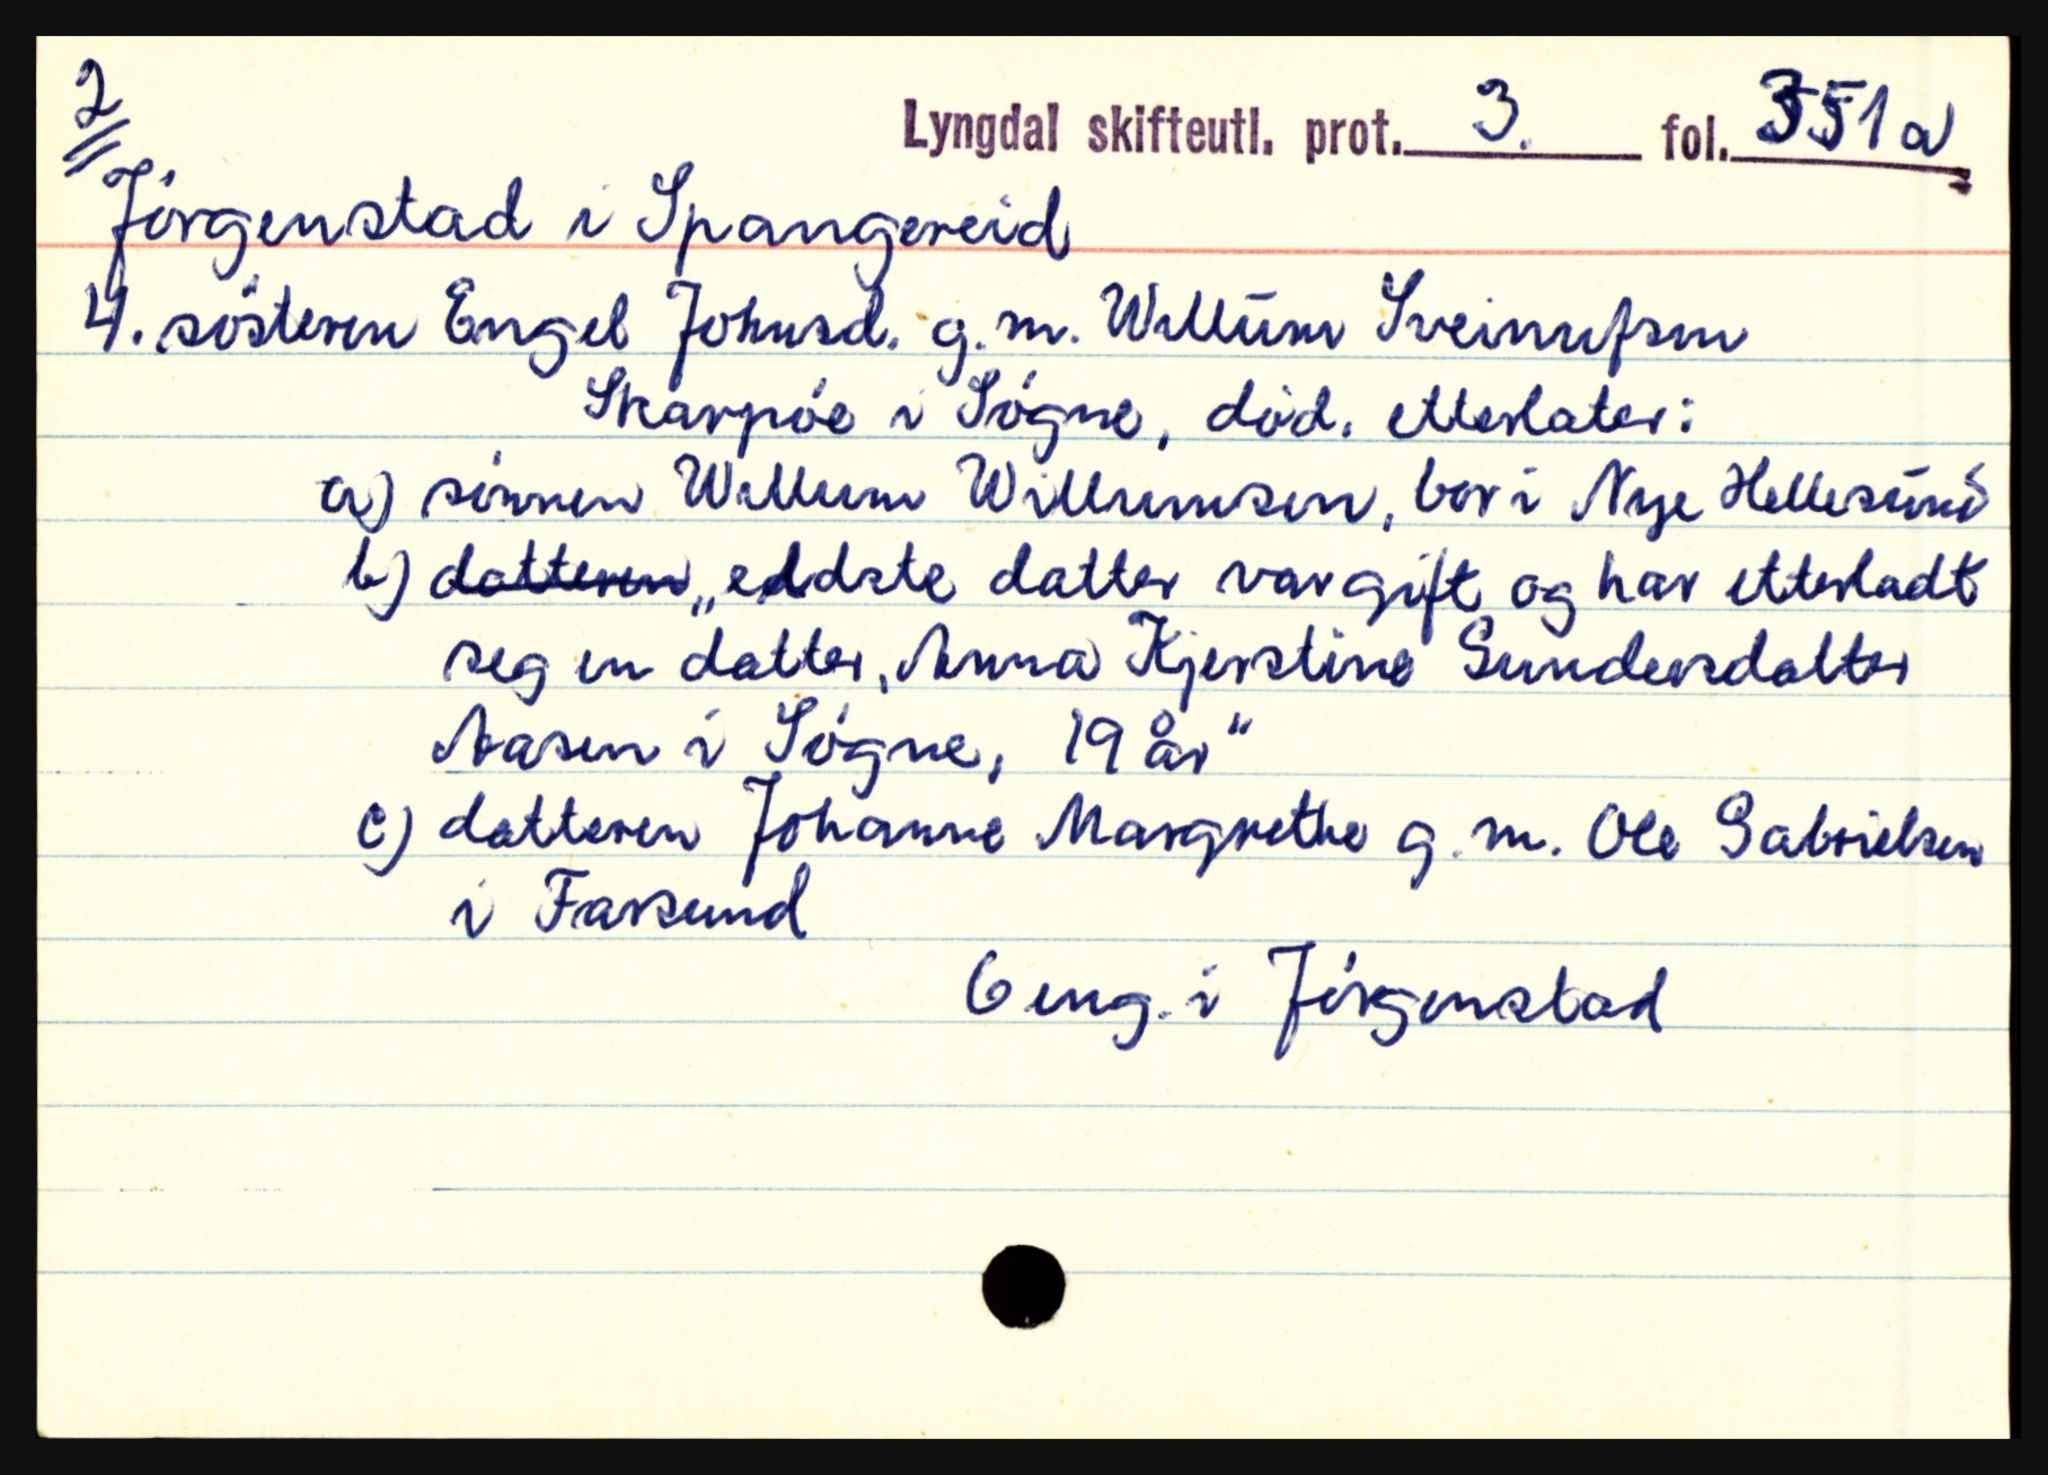 2
Lyngdal skifteutl. prot. 3. fol. 351a
Jørgenstad i Spangereid
4. søsteren Engel Johnsd. g.m. Willum
Skarpøe i Søgne, død. etterlater:
a) sønnen Willum Willumsen, bor i Nye Hellesund
b) datteren „eldste datter var gift og har etterladt
seg en datter, Anna Kjerstine Gundersdatter
Aasen i Søgne, 19 år"
c) datteren Johanne Margrethe g.m. Ole Gabrielsen
i Farsund
6 eng. i Jørgenstad